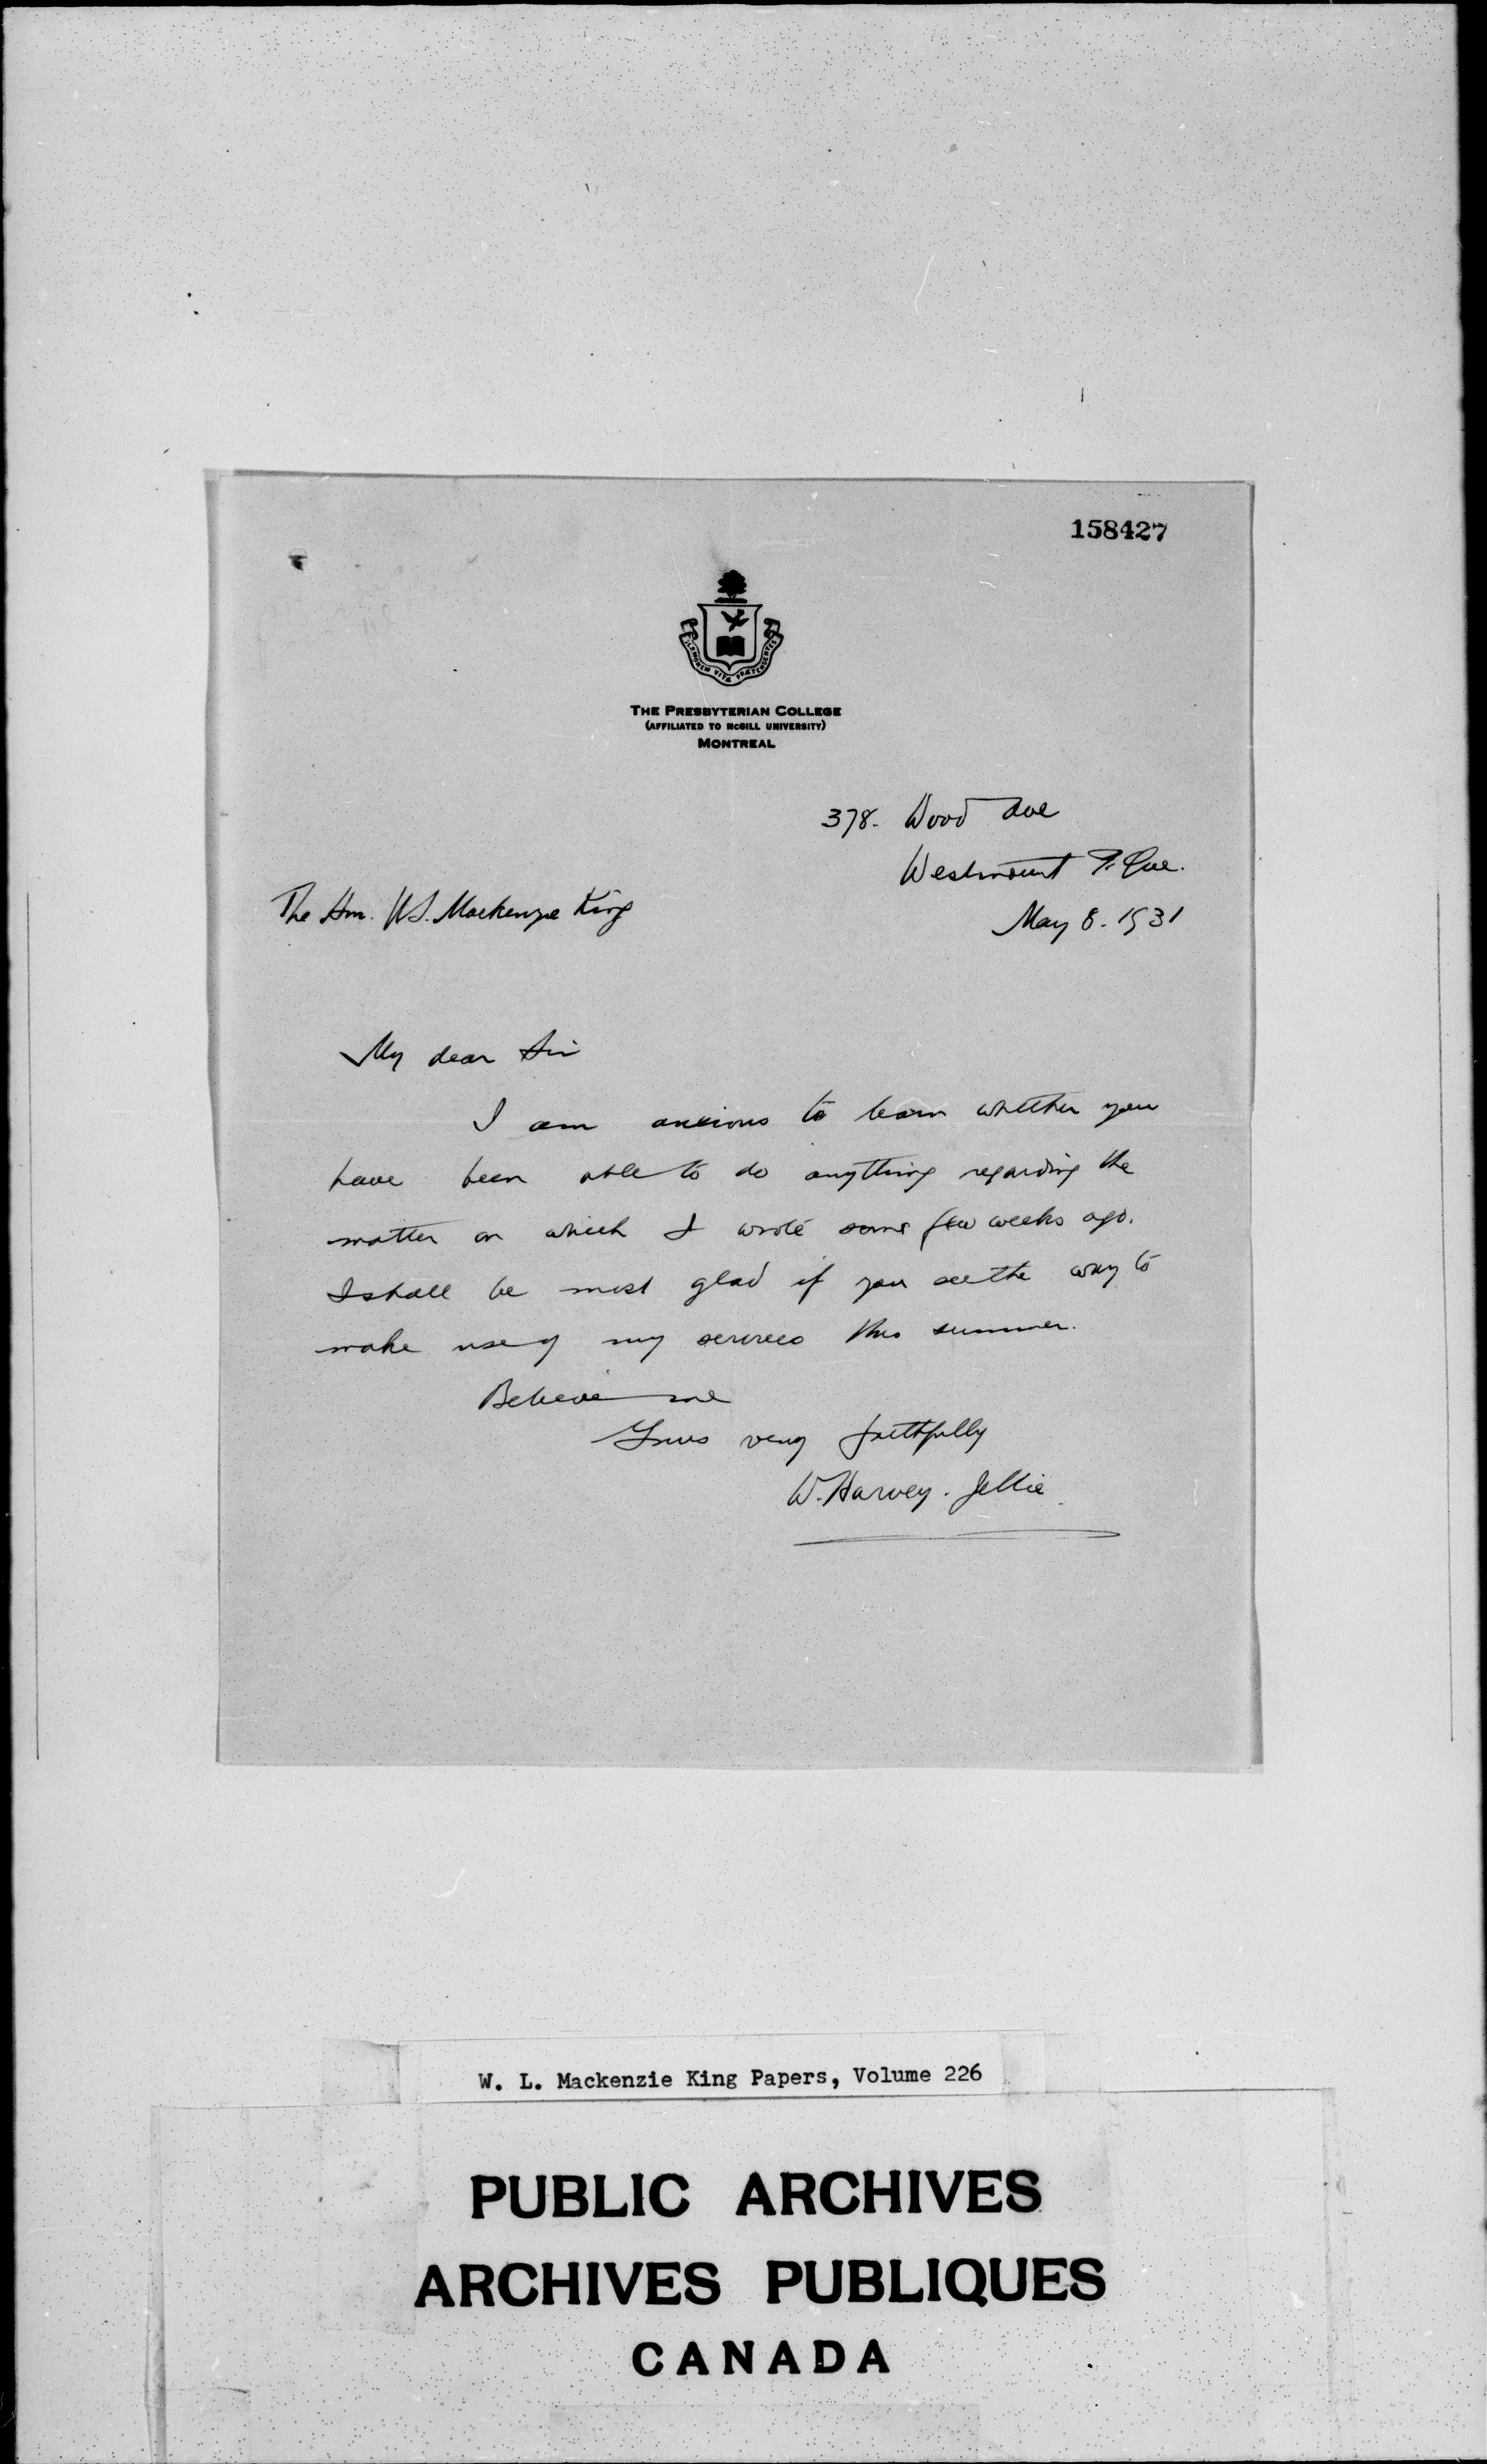 158427
THE PRESBYTERIAN COLLEGE
(AFFILIATED TO MCGILL UNIVERSITY)
MONTREAL
378. Wood Ave
Westmount P. Que.
The Hon. W.L. Mackenzie King
May 8. 1931
My dear Sir
I am anxious to learn whether you
have been able to do anything regarding the
matter on which I wrote some few weeks ago.
I shall be most glad if you see the way to
make use of my services this summer.
Believe me
Yours very faithfully
W. Harvey. Jellie
W. L. Mackenzie King Papers, Volume 226
PUBLIC ARCHIVES
ARCHIVES PUBLIQUES
CANADA